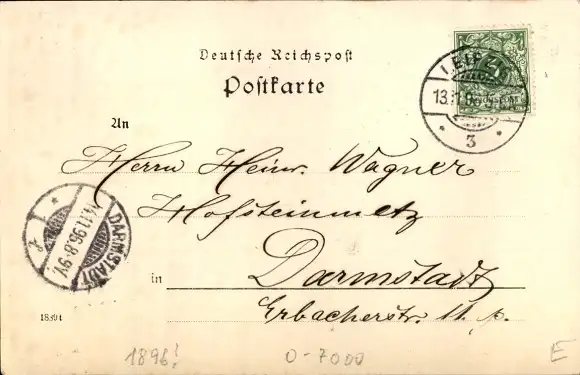 Deutsche Reichspost
Postkarte
An
Herrn Heinr. Wagner
Hofsteinmetz
in Darmstadt
Erbacherstr.
DARMSTADT
14.11.96.8-9V.
3
1896!
0-7000
E